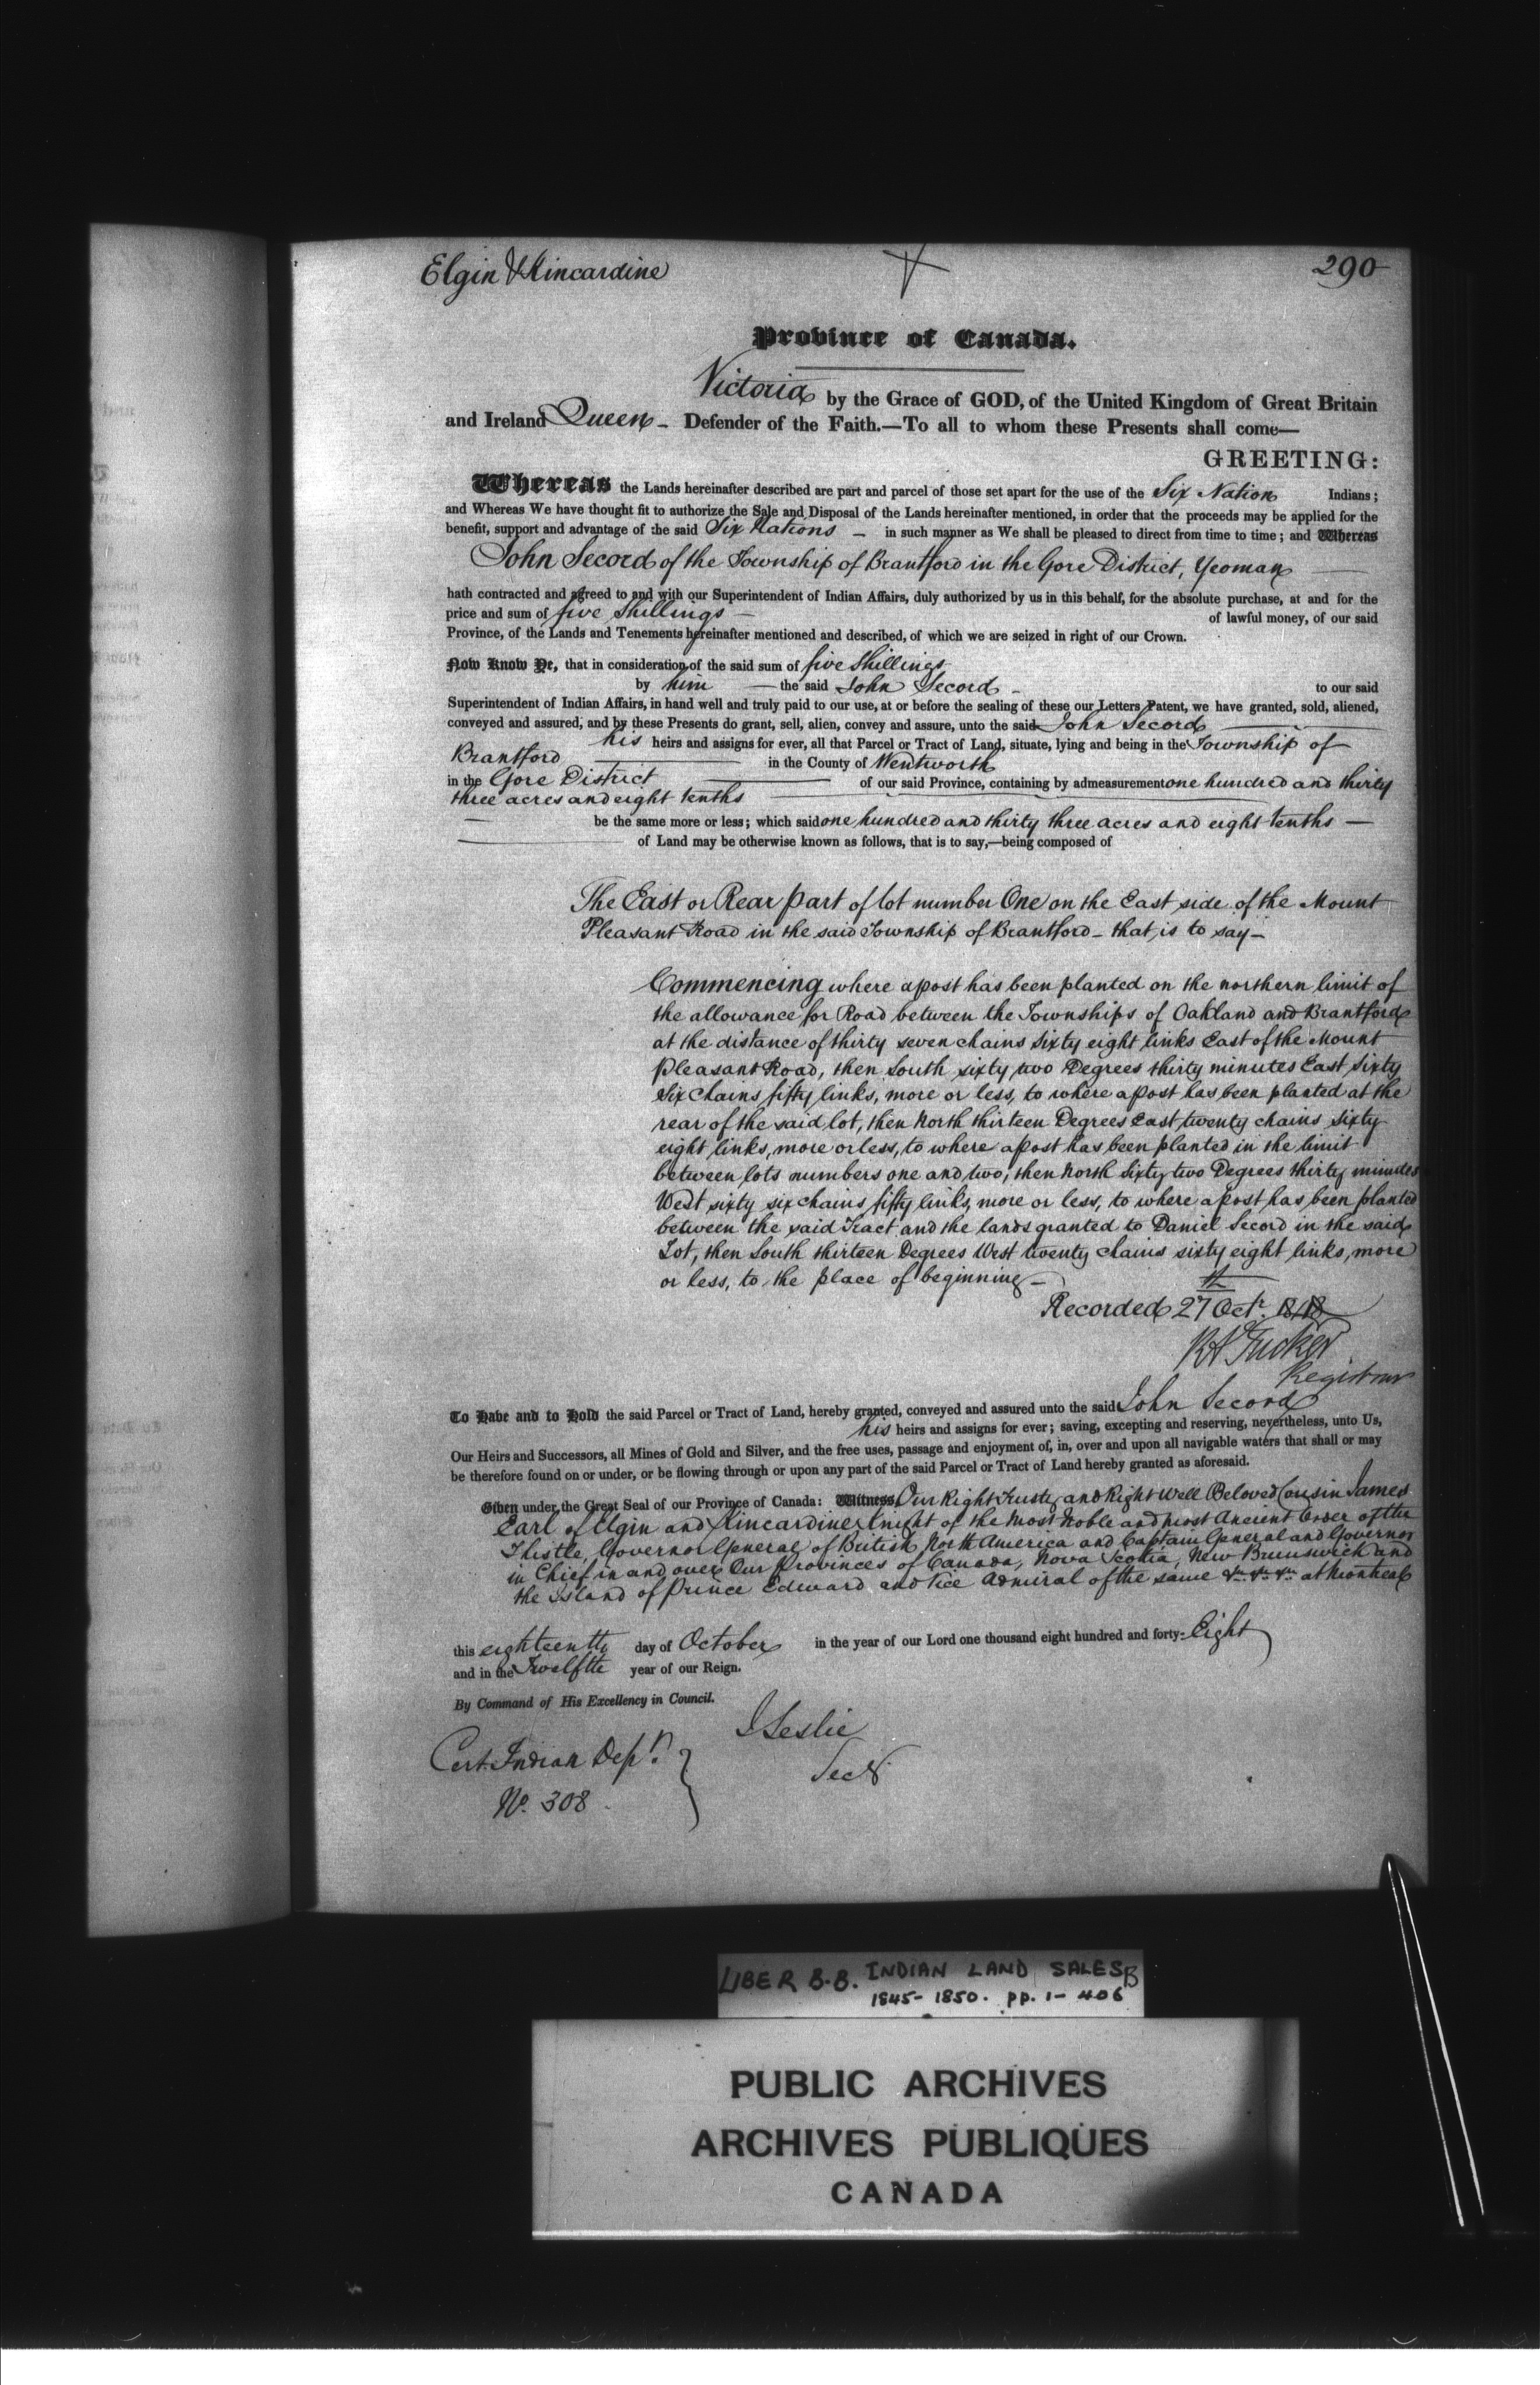 Elgin & Kincardine
290
Province of Canada.
Victoria by the Grace of GOD, of the United Kingdom of Great Britain
and Ireland Queen - Defender of the Faith.—To all to whom these Presents shall come—
GREETING:
Whereas the Lands hereinafter described are part and parcel of those set apart for the use of the Six Nation Indians;
and Whereas We have thought fit to authorize the Sale and Disposal of the Lands hereinafter mentioned, in order that the proceeds may be applied for the
benefit, support and advantage of the said Six Nations - in such manner as We shall be pleased to direct from time to time; and Whereas
John Secord of the Township of Brantford in the Gore District, Yeoman
hath contracted and agreed to and with our Superintendent of Indian Affairs, duly authorized by us in this behalf, for the absolute purchase, at and for the
price and sum of five Shillings - of lawful money, of our said
Province, of the Lands and Tenements hereinafter mentioned and described, of which we are seized in right of our Crown.
Now Know Ye, that in consideration of the said sum of five Shillings
by him - the said John Secord - to our said
Superintendent of Indian Affairs, in hand well and truly paid to our use, at or before the sealing of these our Letters Patent, we have granted, sold, aliened,
conveyed and assured, and by these Presents do grant, sell, alien, convey and assure, unto the said John Secord
his heirs and assigns for ever, all that Parcel or Tract of Land, situate, lying and being in the Township of
Brantford in the County of Wentworth
in the Gore District of our said Province, containing by admeasurement one hundred and thirty
three acres and eight tenths
be the same more or less; which said one hundred and thirty three acres and eight tenths -
of Land may be otherwise known as follows, that is to say,—being composed of
The East or Rear part of lot number One on the East side of the Mount
Pleasant Road in the said Township of Brantford - that is to say -
Commencing where a post has been planted on the northern limit of
the allowance for Road between the Townships of Oakland and Brantford
at the distance of thirty seven chains sixty eight links East of the Mount
Pleasant Road, then South sixty two Degrees thirty minutes East sixty
six chains fifty links, more or less, to where a post has been planted at the
rear of the said lot, then North thirteen Degrees East twenty chains sixty
eight links, more or less, to where a post has been planted in the limit
between lots numbers one and two, then North sixty two Degrees thirty minutes
West sixty six chains fifty links, more or less, to where a post has been planted
between the said Tract and the lands granted to Daniel Secord in the said
Lot, then South thirteen Degrees West twenty chains sixty eight links, more
or less, to the place of beginning -
Recorded 27th Octr. 1848
RA Tucker
Registrar
To Have and to Hold the said Parcel or Tract of Land, hereby granted, conveyed and assured unto the said John Secord
his heirs and assigns for ever; saving, excepting and reserving, nevertheless, unto Us,
Our Heirs and Successors, all Mines of Gold and Silver, and the free uses, passage and enjoyment of, in, over and upon all navigable waters that shall or may
be therefore found on or under, or be flowing through or upon any part of the said Parcel or Tract of Land hereby granted as aforesaid.
Given under the Great Seal of our Province of Canada: Witness, Our Right Trusty and Right Well Beloved Cousin James
Earl of Elgin and Kincardine Knight of the Most Noble and most Ancient Order of the
Thistle, Governor General of British North America and Captain General and Governor
in Chief in and over Our Provinces of Canada, Nova Scotia, New Brunswick and
the Island of Prince Edward and Vice Admiral of the same &c. &c. &c. at Montreal
this eighteenth day of October in the year of our Lord one thousand eight hundred and forty-Eight
and in the Twelfth year of our Reign.
By Command of His Excellency in Council.
J Leslie
Secy.
Cert. Indian Dept.
No. 308
LIBER B.B. INDIAN LAND SALES B
1845-1850. pp. 1-406
PUBLIC ARCHIVES
ARCHIVES PUBLIQUES
CANADA